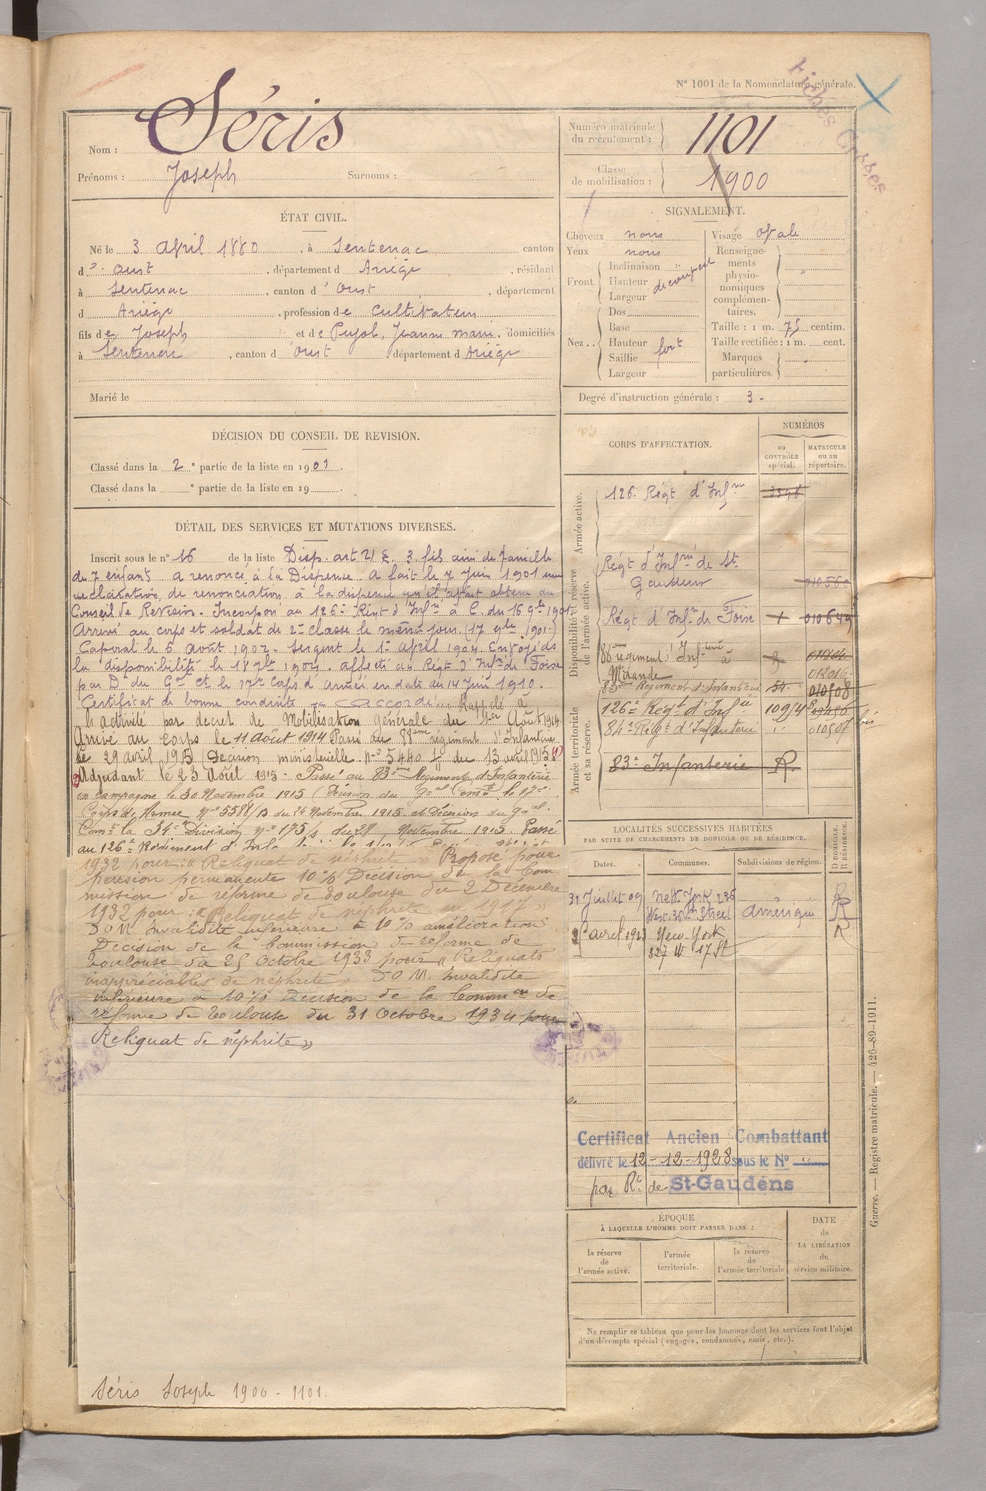 N° 1001 de la Nomenclature générale.
Fiches Grosses
Nom : Séris
Prénoms : Joseph Surnoms :
Numéro matricule du recrutement : 1101
Classe de mobilisation : 1900
ÉTAT CIVIL.
Né le 3 Avril 1880, à Sentenac, canton
d'Oust, département d Ariège, résidant
à Sentenac, canton d'Oust, département
d Ariège, profession de Cultivateur
fils de Joseph et de Pujol, Jeanne marie, domiciliés
à Sentenac, canton d'Oust, département d Ariège
Marié le
SIGNALEMENT.
Cheveux noirs
Yeux noirs
Front. Inclinaison "
Hauteur découvert
Largeur
Nez.. Dos
Base
Hauteur fort
Saillie
Largeur
Visage Ovale
Renseignements physionomiques complémentaires. "
Taille : 1 m. 75 centim.
Taille rectifiée : 1 m. cent.
Marques particulières.
Degré d'instruction générale : 3 -
DÉCISION DU CONSEIL DE REVISION.
Classé dans la 2e partie de la liste en 1901.
Classé dans la e partie de la liste en 19
DÉTAIL DES SERVICES ET MUTATIONS DIVERSES.
Inscrit sous le n° 16 de la liste Disp. art 21 § 3. fils ainé de famille
de 7 enfants a renoncé à la Dispense. A fait le 7 Juin 1901 une
déclaration de renonciation à la dispense qu'il avait obtenu au
Conseil de Revision. Incorporé au 126e Régt d'Infrie à C. du 16 9bre 1901
Arrivé au corps et soldat de 2e classe le même jour. (17 9bre 1901.)
Caporal le 6 août 1902. Sergent le 1er April 1904. Envoyé ds
la disponibilité le 18 7bre 1904. affecté au Régt d'Infrie de Foix
par Don du Gal Ct le 17e Corps d'Armée en date du 14 Juin 1910.
Certificat de bonne conduite Accordé. Rappelé à
l'activité par decret de Mobilisation générale du 1er Août 1914
Arrivé au Corps le 11 Août 1914 Passé au 88ème régiment d'Infanterie
le 29 avril 1915 (Décision ministerielle no 5440 1/1 du 13 avril 1915)
Adjudant le 23 Août 1915 - Passé au 83e Régiment d'Infanterie
en campagne le 30 Novembre 1915 (Décision du Gal Comt le 17e
Corps de Armee No 5588/13 du 24 Novembre 1915 et Décision du gal
Comt la 34e Division No 175/s du 28 Novembre 1915. Passé
au 126e Régiment d'Inf.
1932 pour : « Reliquat de néphrite » Proposé pour
pension permanente 10% Décision de la Com
mission de réforme de Toulouse du 2 Décembre
1932 pour : « Reliquat de néphrite en 1917 »
D.O.M. Invalidité inférieure à 10% amélioration
Décision de la Commission de réforme de
Toulouse du 25 Octobre 1933 pour « Reliquats
inappréciables de néphrite » D.O.M. Invalidité
inférieure à 10% Décision de la Common de
réforme de Toulouse du 31 Octobre 1934 pour
Reliquat de néphrite »
Séris Joseph 1900 - 1101.
CORPS D'AFFECTATION.
NUMÉROS
au CONTRÔLE spécial.
MATRICULE ou au répertoire.
Armée active.
126e Régt d'Infrie 3596
Disponibilité et réserve de l'armée active.
Régt d'Infrie de St. Gaudens
Régt d'Infrie de Foix 010649
88ème régiment d'Infrie à Mirande
83ème Régiment d'Infanterie 010808
126e Régt d'Infie 10914
84e Régt d'Infanterie 010507 bis
Armée territoriale et sa réserve.
83e Infanterie R.
LOCALITÉS SUCCESSIVES HABITÉES
PAR SUITE DE CHANGEMENTS DE DOMICILE OU DE RÉSIDENCE.
Dates. Communes. Subdivisions de région. D. DOMICILE. R. RÉSIDENCE.
31 Juillet 09 New-York 236 West. 36th Street Amérique R
avril 1923 New-York 327 W 17 St R
Certificat Ancien Combattant
délivré le 12-12-1928 sous le N°
par Rt de St-Gaudens
ÉPOQUE
À LAQUELLE L'HOMME DOIT PASSER DANS :
la réserve de l'armée active.
l'armée territoriale.
la réserve de l'armée territoriale
DATE de LA LIBÉRATION du service militaire.
Ne remplir ce tableau que pour les hommes dont les services font l'objet
d'un décompte spécial (engagés, condamnés, omis, etc.).
Guerre. — Registre matricule. — 426-89-1911.